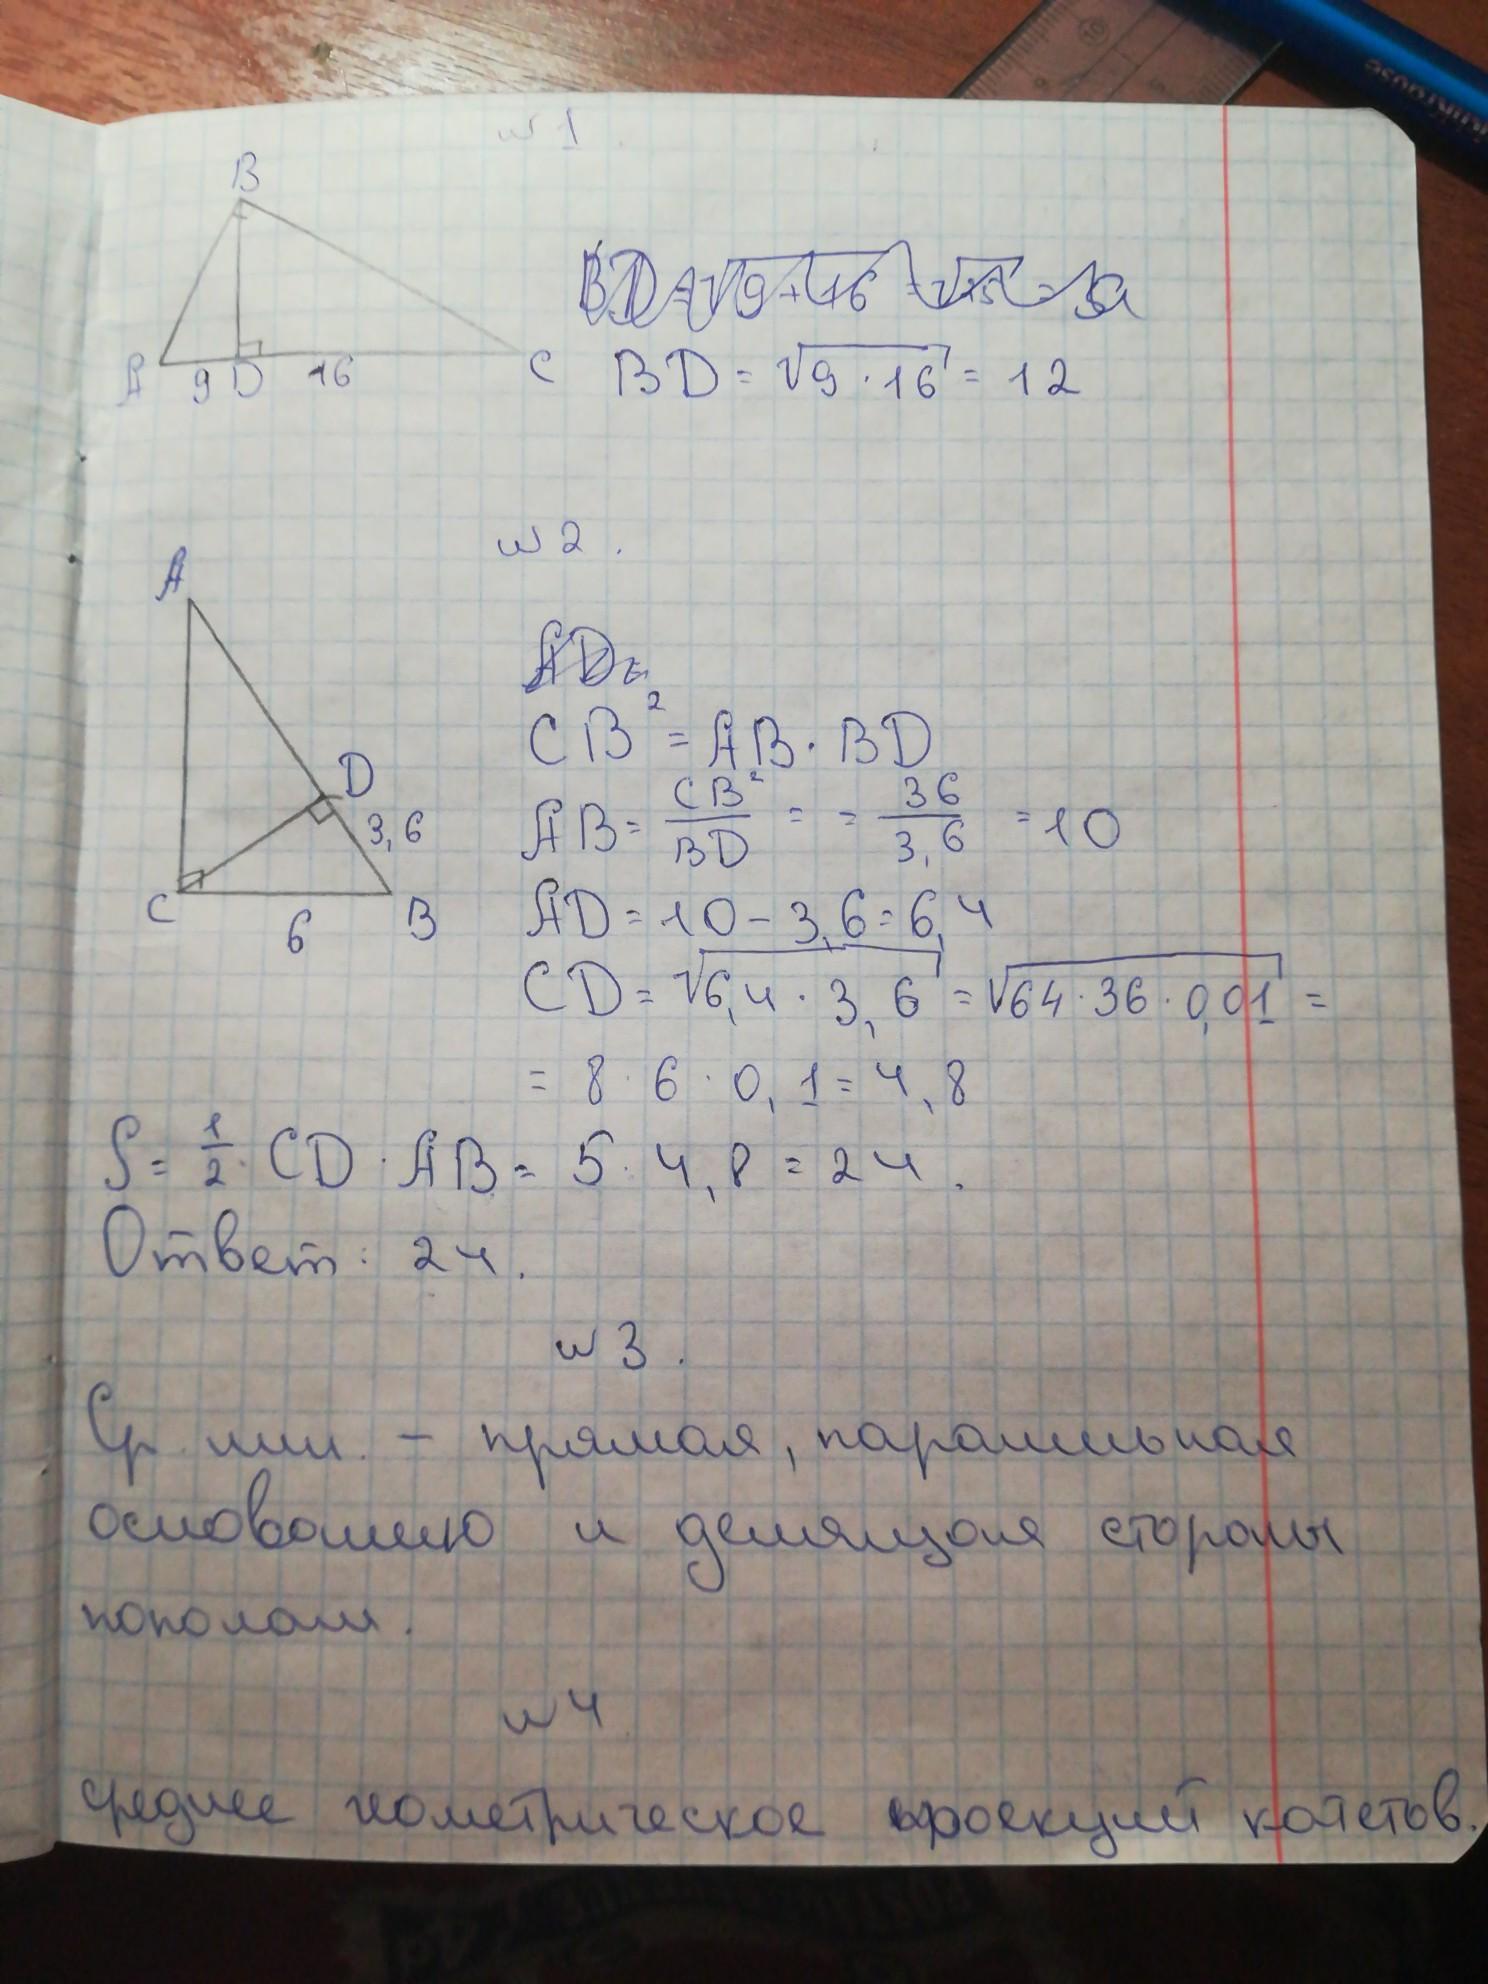 №1.
B
A 9 D 16 C
BD = √9·16 = 12
№2.
A
D
3,6
C
6
B
CB² = AB · BD
AB = CB²/BD = = 36/3,6 = 10
AD = 10 - 3,6 = 6,4
CD = √6,4 · 3,6 = √64 · 36 · 0,01 =
= 8 · 6 · 0,1 = 4,8
S = 1/2 · CD · AB = 5 · 4,8 = 24.
Ответ: 24.
№3.
Ср. лин. - прямая, параллельная
основанию и делящая стороны
пополам.
№4
среднее геометрическое проекций катетов.